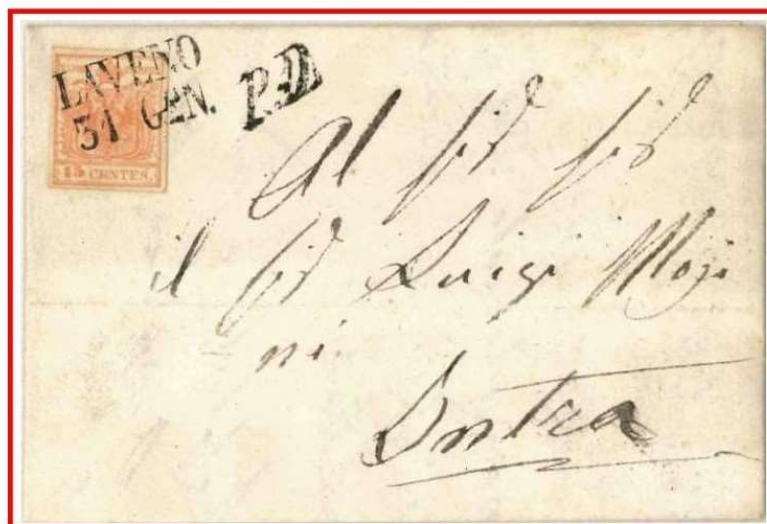 LAVENO
31 GEN.
P.D.
15 CENTES.
Al Sig.r Sig.r
il Sig.r Luigi Mozi
ni
Intra